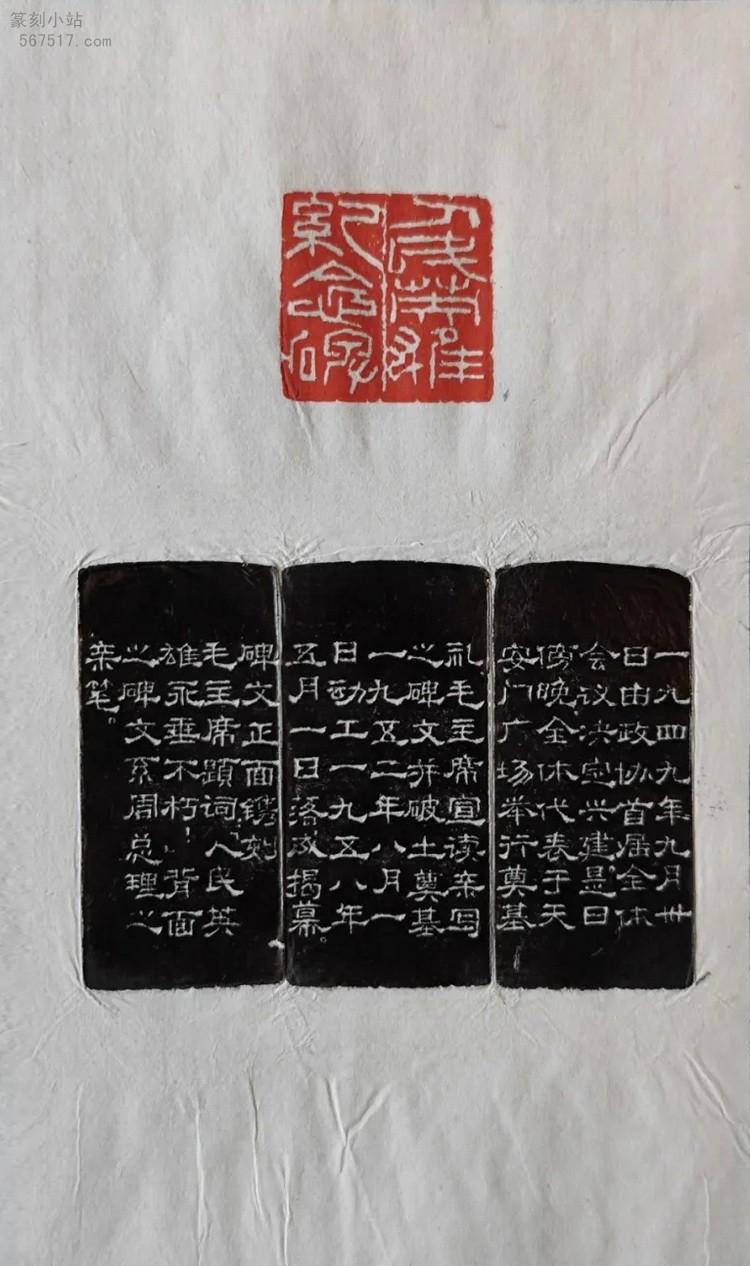 篆刻小站
567517.com
人民英雄
紀念碑
一九四九年九月卅
日由政协首届全体
会议决定兴建是日
傍晚全体代表于天
安门广场举行奠基
礼毛主席宣读亲写
之碑文并破土奠基
一九五二年八月一
日动工一九五八年
五月一日落成揭幕。
碑文正面镌刻
毛主席题词人民英
雄永垂不朽！背面
之碑文系周总理之
亲笔。